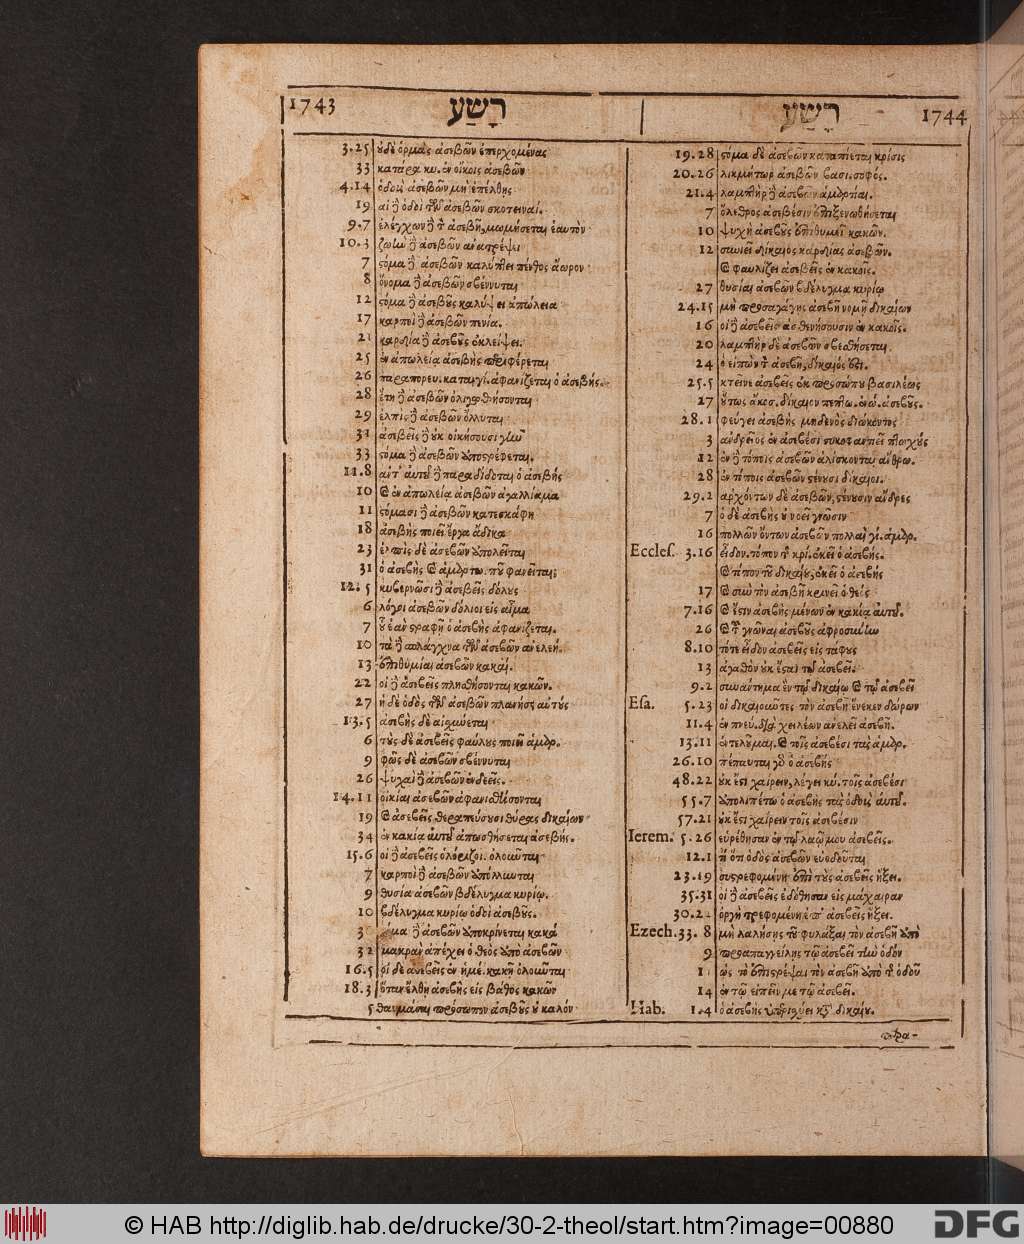 1743 רָשַׁע
3.25 ὐδὲ ὁρμὰς ἀσεβῶν ἐπερχομένας
33 κατάρα κυ. ἐν οἴκοις ἀσεβῶν
4.14 ὁδοὺς ἀσεβῶν μὴ ἐπέλθης
19 αἱ ἢ ὁδοὶ τῶν ἀσεβῶν σκοτειναί.
9.7 ἐλέγχων ἢ τ ἀσεβῆ, μωμήσεται ἑαυτὸν
10.3 ζωὴν ἢ ἀσεβῶν ἀνατρέψει
7 στόμα ἢ ἀσεβῶν καλύπτει πένθος ἄωρον
8 ὄνομα ἢ ἀσεβῶν σβέννυται
12 στόμα ἢ ἀσεβοῦς καλύψει ἀπώλεια
17 καρποὶ ἢ ἀσεβῶν πενία.
21 καρδία ἢ ἀσεβοῦς ἐκλείψει.
25 ἐν ἀπωλεία ἀσεβὴς περιφέρεται
26 παραπορευ. καταιγί. ἀφανίζεται ὁ ἀσεβής.
28 ἔτη ἢ ἀσεβῶν ὀλιγωθήσονται
29 ἐλπὶς ἢ ἀσεβῶν ὄλλυται
32 ἀσεβεῖς ἢ οὐκ οἰκήσουσι γῆν
33 στόμα ἢ ἀσεβῶν ὑποστρέφεται.
11.8 ἀντ' αὐτοῦ ἢ παραδίδοται ὁ ἀσεβὴς
10 καὶ ἐν ἀπωλεία ἀσεβῶν ἀγαλλίαμα
11 στόμασι ἢ ἀσεβῶν κατεσκάφη
18 ἀσεβὴς ποιεῖ ἔργα ἄδικα
23 ἐλπὶς δὲ ἀσεβῶν ἀπολεῖται
31 ὁ ἀσεβὴς καὶ ἁμαρτω. ποῦ φανεῖται;
12.5 κυβερνῶσι ἢ ἀσεβεῖς δόλους
6 λόγοι ἀσεβῶν δόλιοι εἰς αἷμα
7 οὗ ἐὰν στραφῇ ὁ ἀσεβὴς ἀφανίζεται.
10 τὰ ἢ σπλάγχνα τῶν ἀσεβῶν ἀνελεή.
13 ἐπιθυμίαι ἀσεβῶν κακαί.
22 οἱ ἢ ἀσεβεῖς πλησθήσονται κακῶν.
27 ἡ δὲ ὁδὸς τῶν ἀσεβῶν πλανήσει αὐτούς
13.5 ἀσεβὴς δὲ αἰσχύεται
6 τοὺς δὲ ἀσεβεῖς φαύλους ποιεῖ ἁμαρ.
9 φῶς δὲ ἀσεβῶν σβέννυται
26 ψυχαὶ ἢ ἀσεβῶν ἐνδεεῖς.
14.11 οἰκίαι ἀσεβῶν ἀφανισθήσονται
19 καὶ ἀσεβεῖς θεραπεύσουσι θύρας δικαίων
34 ἐν κακία αὐτοῦ ἀπωσθήσεται ἀσεβής.
15.6 οἱ ἢ ἀσεβεῖς ὁλόρριζοι. ὀλοῦνται
7 καρποὶ ἢ ἀσεβῶν ἀπόλλυνται
9 θυσία ἀσεβῶν βδέλυγμα κυρίῳ.
10 βδέλυγμα κυρίῳ ὁδοὶ ἀσεβοῦς.
στόμα ἢ ἀσεβῶν ἀποκρίνεται κακά
32 μακρὰν ἀπέχει ὁ θεὸς ἀπὸ ἀσεβῶν
16.5 οἱ δὲ ἀσεβεῖς ἐν ἡμέ. κακῇ ὀλοῦνται
18.3 ὅταν ἔλθῃ ἀσεβὴς εἰς βάθος κακῶν
5 θαυμάσαι πρόσωπον ἀσεβοῦς οὐ καλόν
רָשַׁע 1744
19.28 στόμα δὲ ἀσεβῶν καταπίεται κρίσις
20.26 λικμήτωρ ἀσεβῶν βασι. σοφός.
21.4 λαμπτὴρ ἢ ἀσεβῶν ἁμαρτίαι.
7 ὄλεθρος ἀσεβέσιν ἐπιξενωθήσεται
10 ψυχὴ ἀσεβοῦς ἐπιθυμεῖ κακῶν.
12 συνιεῖ δίκαιος καρδίας ἀσεβῶν.
καὶ φαυλίζει ἀσεβεῖς ἐν κακοῖς.
27 θυσίαι ἀσεβῶν βδέλυγμα κυρίῳ
24.15 μὴ προσαγάγης ἀσεβῆ νομῇ δικαίων
16 οἱ ἢ ἀσεβεῖς ἀσθενήσουσιν ἐν κακοῖς.
20 λαμπτὴρ δὲ ἀσεβῶν σβεσθήσεται
24 ὁ εἰπὼν τ ἀσεβῆ, δίκαιός ἐστι.
25.5 κτεῖνε ἀσεβεῖς ἐκ προσώπου βασιλέως
28.1 φεύγει ἀσεβὴς μηδενὸς διώκοντος
3 ἀνδρεῖος ἐν ἀσεβέσι συκοφαντεῖ πτωχούς
12 ἐν ἢ τόποις ἀσεβῶν ἁλίσκονται ἄνθρω.
28 ἐν τόποις ἀσεβῶν στένουσι δίκαιοι.
29.2 ἀρχόντων δὲ ἀσεβῶν, στένουσιν ἄνδρες
7 ὁ δὲ ἀσεβὴς οὐ νοεῖ γνῶσιν
16 πολλῶν ὄντων ἀσεβῶν πολλαὶ γί. ἁμαρ.
Eccles. 3.16 εἶδον. τόπον τ κρί. ἐκεῖ ὁ ἀσεβής.
καὶ τόπον τοῦ δικαίου, ἐκεῖ ὁ ἀσεβὴς
17 καὶ σὺν τὸν ἀσεβῆ κρινεῖ ὁ θεός
7.16 καὶ ἔστιν ἀσεβὴς μένων ἐν κακία αὐτοῦ.
26 καὶ τ γνῶναι ἀσεβοῦς ἀφροσύνην
8.10 τότε εἶδον ἀσεβεῖς εἰς τάφους
13 ἀγαθὸν οὐκ ἔσται τῷ ἀσεβεῖ.
9.2 συνάντημα ἓν τῷ δικαίῳ καὶ τῷ ἀσεβεῖ
Esa. 5.23 οἱ δικαιοῦντες τὸν ἀσεβῆ ἕνεκεν δώρων
11.4 ἐν πνεύ. διὰ χειλέων ἀνελεῖ ἀσεβῆ.
13.11 ἐντελοῦμαι. καὶ τοῖς ἀσεβέσι τὰς ἁμαρ.
26.10 πέπαυται γὰρ ὁ ἀσεβὴς
48.22 οὐκ ἔστι χαίρειν, λέγει κύ. τοῖς ἀσεβέσι
55.7 ἀπολιπέτω ὁ ἀσεβὴς τὰς ὁδοὺς αὐτοῦ.
57.21 οὐκ ἔστι χαίρειν τοῖς ἀσεβέσιν
Ierem. 5.26 εὑρέθησαν ἐν τῷ λαῷ μου ἀσεβεῖς.
12.1 τί ὅτι ὁδὸς ἀσεβῶν εὐοδοῦται
23.19 συστρεφομένη ἐπὶ τοὺς ἀσεβεῖς ἥξει.
35.31 οἱ ἢ ἀσεβεῖς ἐδόθησαν εἰς μάχαιραν
30.2 ὀργὴ στρεφομένη ἐπ' ἀσεβεῖς ἥξει.
Ezech. 33.8 μὴ λαλήσης τοῦ φυλάξαι τὸν ἀσεβῆ ἀπὸ
9 προαπαγγείλης τῷ ἀσεβεῖ τὴν ὁδὸν
ὡς τὸ ἀποστρέψαι τὸν ἀσεβῆ ἀπὸ τ ὁδοῦ
14 ἐν τῷ εἰπεῖν με τῷ ἀσεβεῖ.
Hab. 1.4 ὁ ἀσεβὴς δίκαιον.
παρα-
© HAB http://diglib.hab.de/drucke/30-2-theol/start.htm?image=00880
DFG